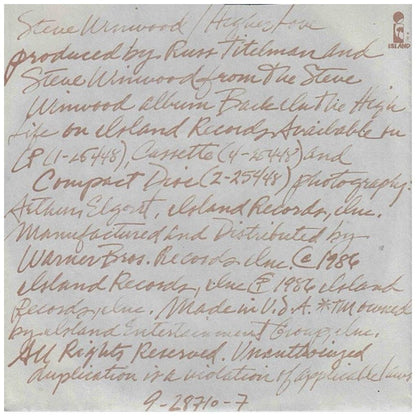 Steve Winwood / Higher Love
ISLAND
produced by Russ Titelman and
Steve Winwood from the Steve
Winwood album Back In the High
Life on Island Records. Available on
LP (1-25448), Cassette (4-25448) and
Compact Disc (2-25448) photography:
Arthur Elgort, Island Records, Inc.
Manufactured and Distributed by
Warner Bros. Records, Inc. © 1986
Island Records, Inc. ℗ 1986 Island
Records, Inc. Made in U.S.A. *TM owned
by Island Entertainment Group, Inc.
All Rights Reserved. Unauthorized
duplication is a violation of applicable laws
9-28710-7